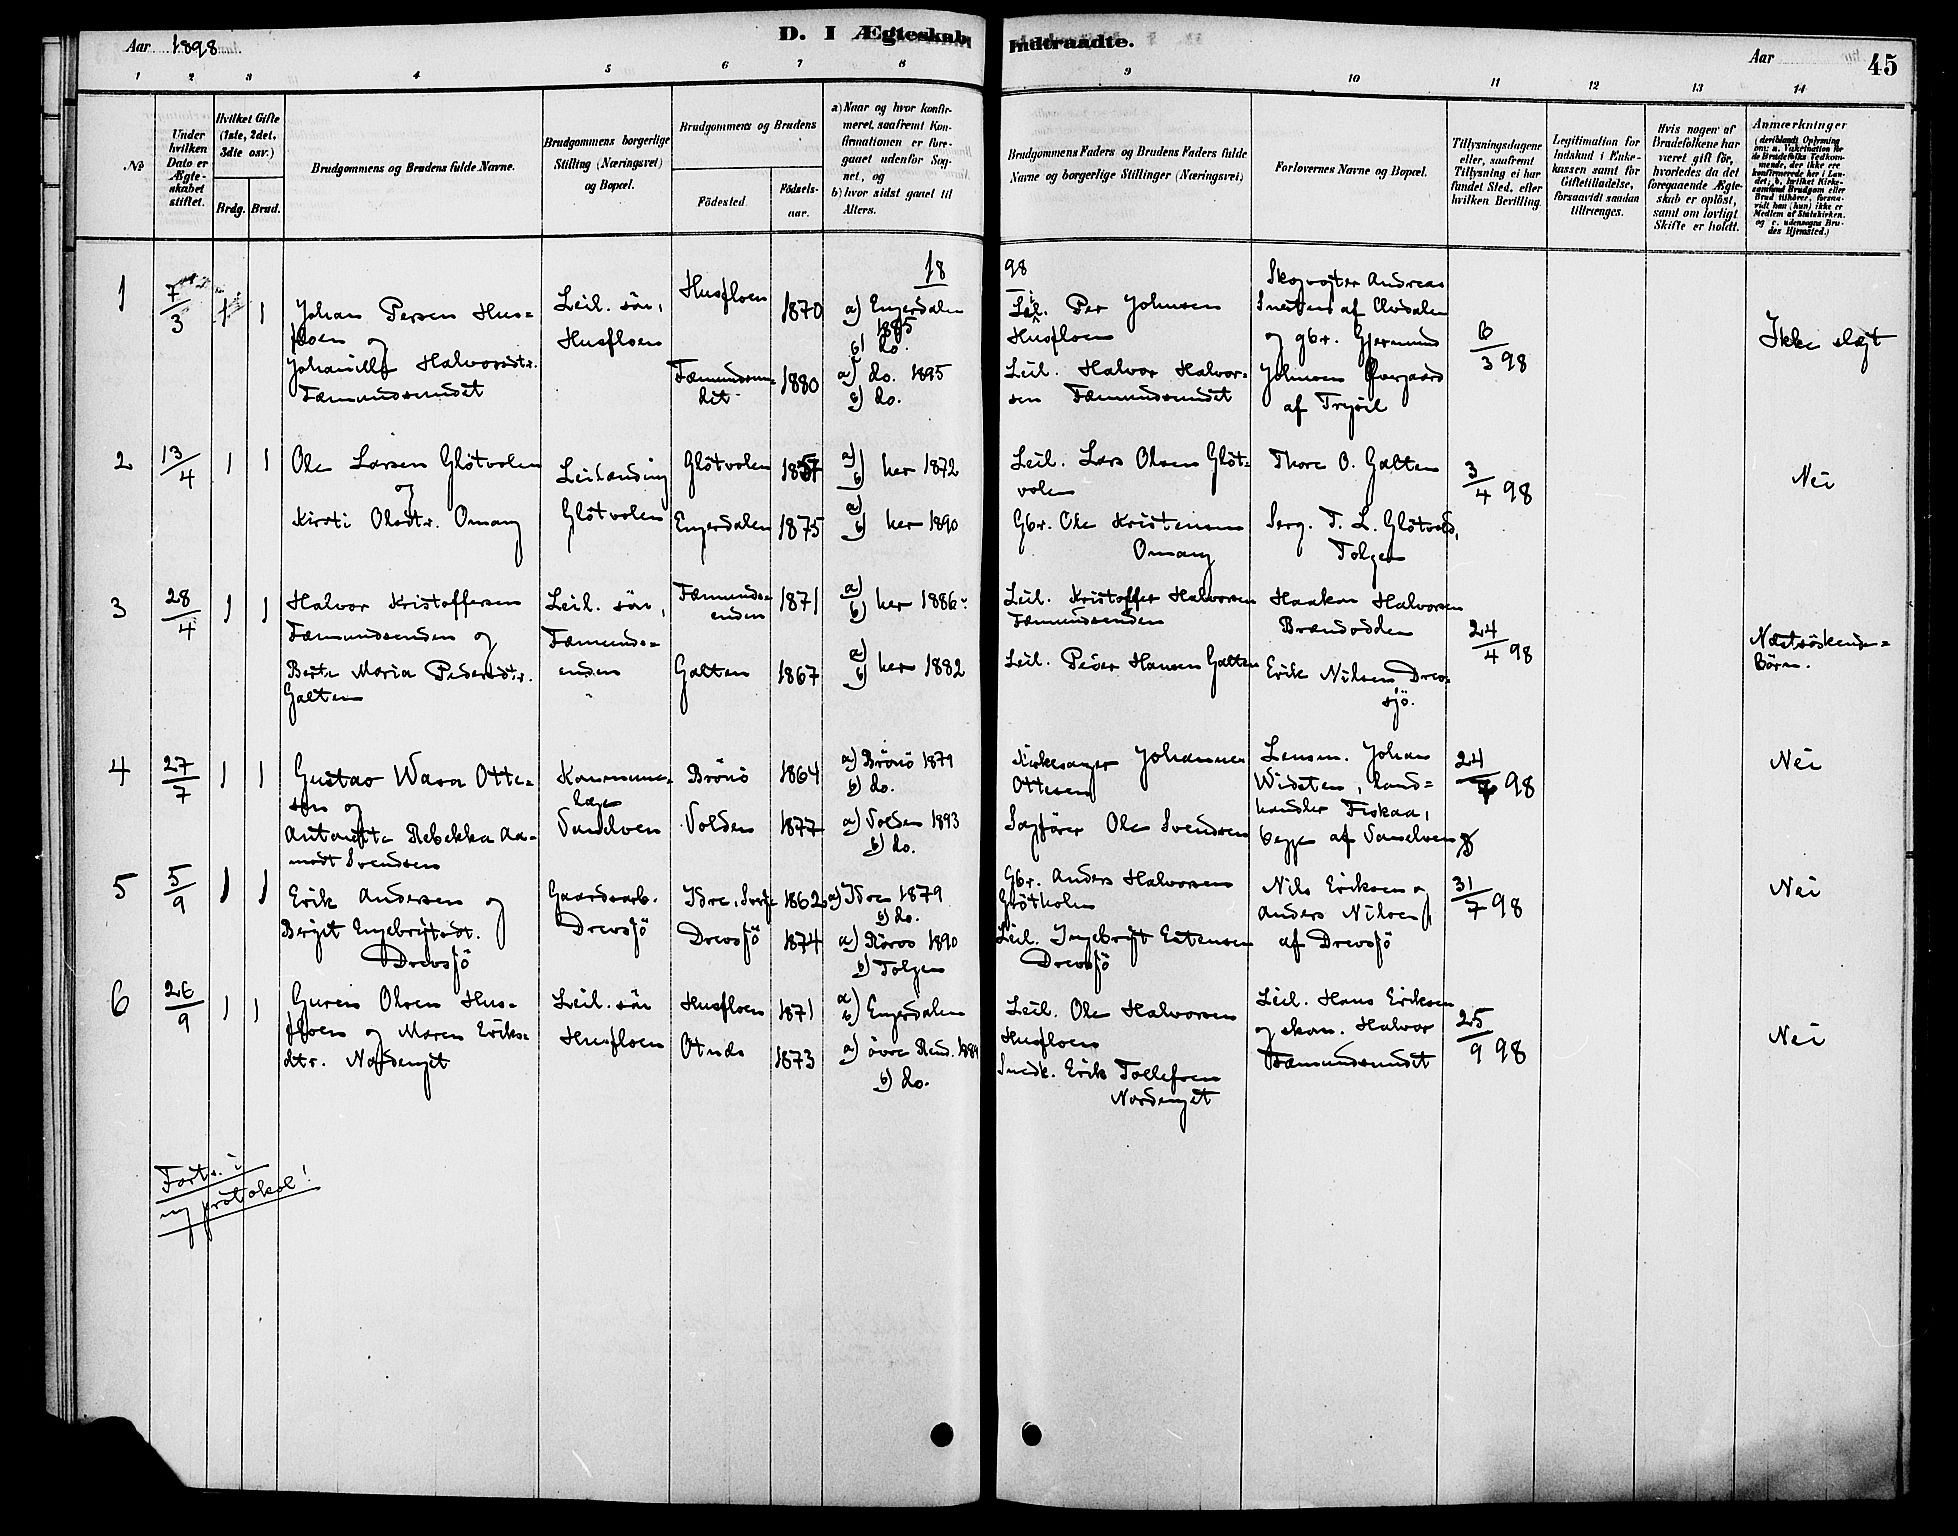 Aar 1898
D. I Ægteskab
Indtraadte.
Aar
45
1 2 3 4 5 6 7 8
9 10 11 12 13 14
No
Under hvilken Dato er Ægteskabet stiftet.
Hvilket Gifte (1ste, 2det, 3dte osv.)
Brdg. Brud.
Brudgommens og Brudens fulde Navne.
Brudgommens borgerlige Stilling (Næringsvei) og Bopæl.
Brudgommens og Brudens
Födested
Födselsaar.
a) Naar og hvor konfirmeret, saafremt Konfirmationen er foregaaet udenfor Sognet, og
b) hvor sidst gaaet til Alters.
Brudgommens Faders og Brudens Faders fulde Navne og borgerlige Stillinger (Næringsvei)
Forlovernes Navne og Bopæl.
Tillysningsdagene eller, saafremt Tillysning ei har fundet Sted, efter hvilken Bevilling.
Legitimation for Indskud i Enkekassen samt for Giftetilladelse, forsaavidt saadan tiltrænges.
Hvis nogen af Brudefolkene har været gift för, hvorledes da det foregaaende Ægteskab er oplöst, samt om lovligt Skifte er holdt.
Anmærkninger
18
98
1
7/3
1 1
Johan Persen Hus-
floen og
Halvorsdtr.
Fæmundsundet
Leil. sön,
Husfloen
Husfloen
1870
Fæmundsun-
det
1880
a) Engerdalen
1885
b) do.
a) do. 1895
b) do.
Leil. Per Johnsen
Husfloen
Leil. Halvor Halvor-
sen Fæmundsundet
Skogvogter Andreas
af
og gbr. Gjermund
Johnsen
af Trysil
6/3 98
Ikke slegt
2
13/4
1 1
Ole Larsen Glötvolen
og
Kirsti Olsdtr. Omang
Leilænding
Glötvolen
Glötvolen
1857
Engerdalen
1875
a)
b) her 1872
a)
b) her 1890
Leil. Lars Olsen Glöt-
volen
Gbr. Ole Kristensen
Omang
Thore O. Galten
Serg. T. L. Glötvold,
Tolgen
3/4 98
Nei
3
28/4
1 1
Halvor Kristoffersen
Fæmundsenden og
Berte Maria Pedersdtr.
Galten
Leil. sön,
Fæmunds-
enden
Fæmunds-
enden
1871
Galten
1867
a)
b) her 1886
a)
b) her 1882
Leil. Kristoffer Halvorsen
Fæmundsenden
Leil. Peder Hansen Galten
Haakon Halvorsen
Brændodden
Erik Nilsen Drev-
sjö.
24/4 98
Næstsöskende-
Börn.
4
27/7
1 1
Gustav Wasa Otte-
sen og
Antonette Rebekka Aa-
modt Svendsen
Kommune-
læge
Sandelven
Brönö
1864
Volden
1877
a) Brönö 1879
b) do.
a) Volden 1893
b) do.
Kirkesanger Johannes
Ottesen
Sagförer Ole Svendsen
Lensm. Johan
Widsten, land-
handler Fiskaa,
begge af Sandelven
24/7 98
Nei
5
5/9
1 1
Erik Andersen og
Berget Engebrigtsdt.
Drevsjö
Gaardsarb.
Drevsjö
Idre, Sverige
1862
Drevsjö
1874
a) Idre 1879
b) do.
a) Röros 1890
b) Tolgen
Gbr. Anders Halvorsen
Glötholm
Leil. Ingebrigt Estensen
Drevsjö
Nils Eriksen og
Anders Nilsen,
af Drevsjö
31/7 98
Nei
6
26/9
1 1
Guren Olsen Hus-
floen og Maren Eriks-
dtr. Nordenget
Leil. sön
Husfloen
Husfloen
1871
Otnes
1873
a)
b) Engerdalen
a) övre Rend. 1889
b) do.
Leil. Ole Halvorsen
Husfloen
Snedk. Erik Tollefsen
Nordenget
Leil. Hans Eriksen
og skom. Halvor
Fæmundsundet
25/9 98
Nei
Forts. i
ny protokol!